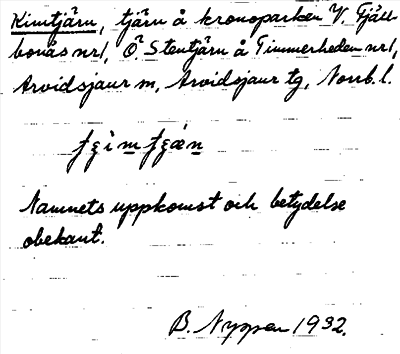 Kimtjärn, tjärn å kronoparken V. Fjäll-
bonäs nr 1, Ö. Stentjärn å Timmerheden nr 1,
Arvidsjaur sn, Arvidsjaur tg, Norrb. l.
Namnets uppkomst och betydelse
obekant.
B. Nyppen 1932.